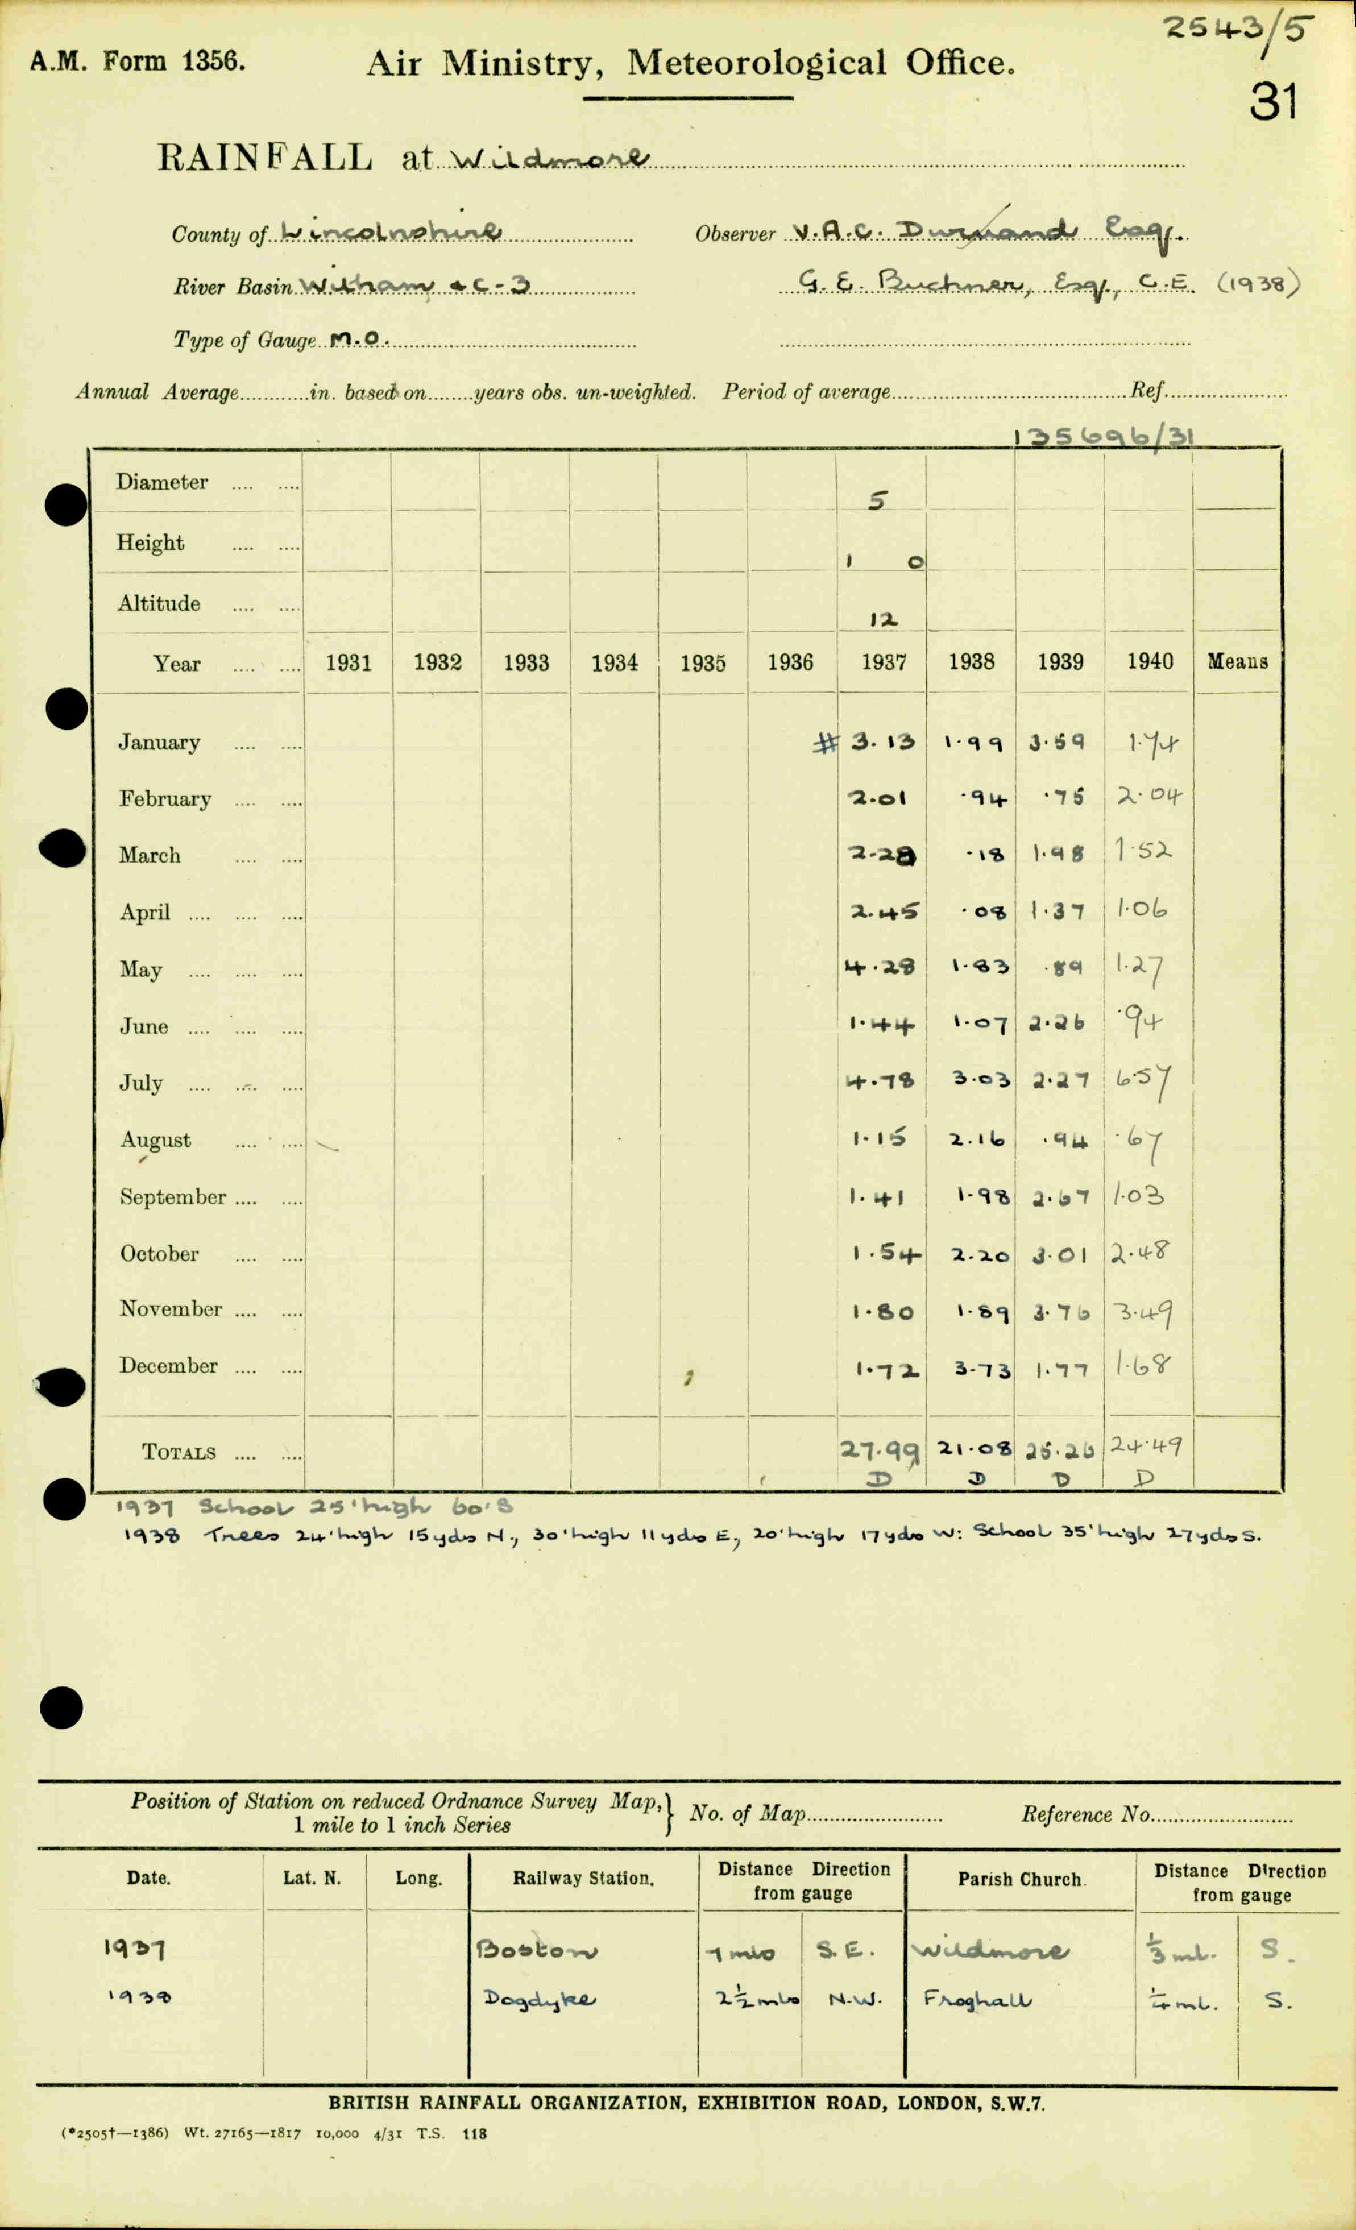 2543/5
A.M. Form 1356. Air Ministry, Meteorological Office.
31
RAINFALL at Wildmore
County of Lincolnshire Observer V.A.C. Durnand Esq.
River Basin Witham & C-3 G. E. Buchner, Esq., C.E. (1938)
Type of Gauge M.O.
Annual Average in. based on years obs. un-weighted. Period of average Ref.
135696/31
Diameter 5
Height 1 0
Altitude 12
Year 1931 1932 1933 1934 1935 1936 1937 1938 1939 1940 Means
January # 3.13 1.99 3.59 1.74
February 2.01 .94 .75 2.04
March 2.28 .18 1.98 1.52
April 2.45 .08 1.37 1.06
May 4.28 1.83 .89 1.27
June 1.44 1.07 2.26 .94
July 4.78 3.03 2.27 6.57
August 1.15 2.16 .94 .67
September 1.41 1.98 2.67 1.03
October 1.54 2.20 3.01 2.48
November 1.80 1.89 3.76 3.49
December 1.72 3.73 1.77 1.68
TOTALS 27.99 21.08 25.26 24.49
D D D D
1937 School 25' high 60' S
1938 Trees 24' high 15 yds N., 30' high 11 yds E, 20' high 17 yds W: School 35' high 27 yds S.
Position of Station on reduced Ordnance Survey Map,} No. of Map Reference No.
1 mile to 1 inch Series
Date. Lat. N. Long. Railway Station. Distance Direction from gauge Parish Church. Distance Direction from gauge
1937 Boston 7 mls S.E. Wildmore 1/3 ml. S.
1938 Dogdyke 2 1/2 mls N.W. Froghall 1/4 ml. S.
BRITISH RAINFALL ORGANIZATION, EXHIBITION ROAD, LONDON, S.W.7.
(*2505†—1386) Wt. 27165—1817 10,000 4/31 T.S. 118